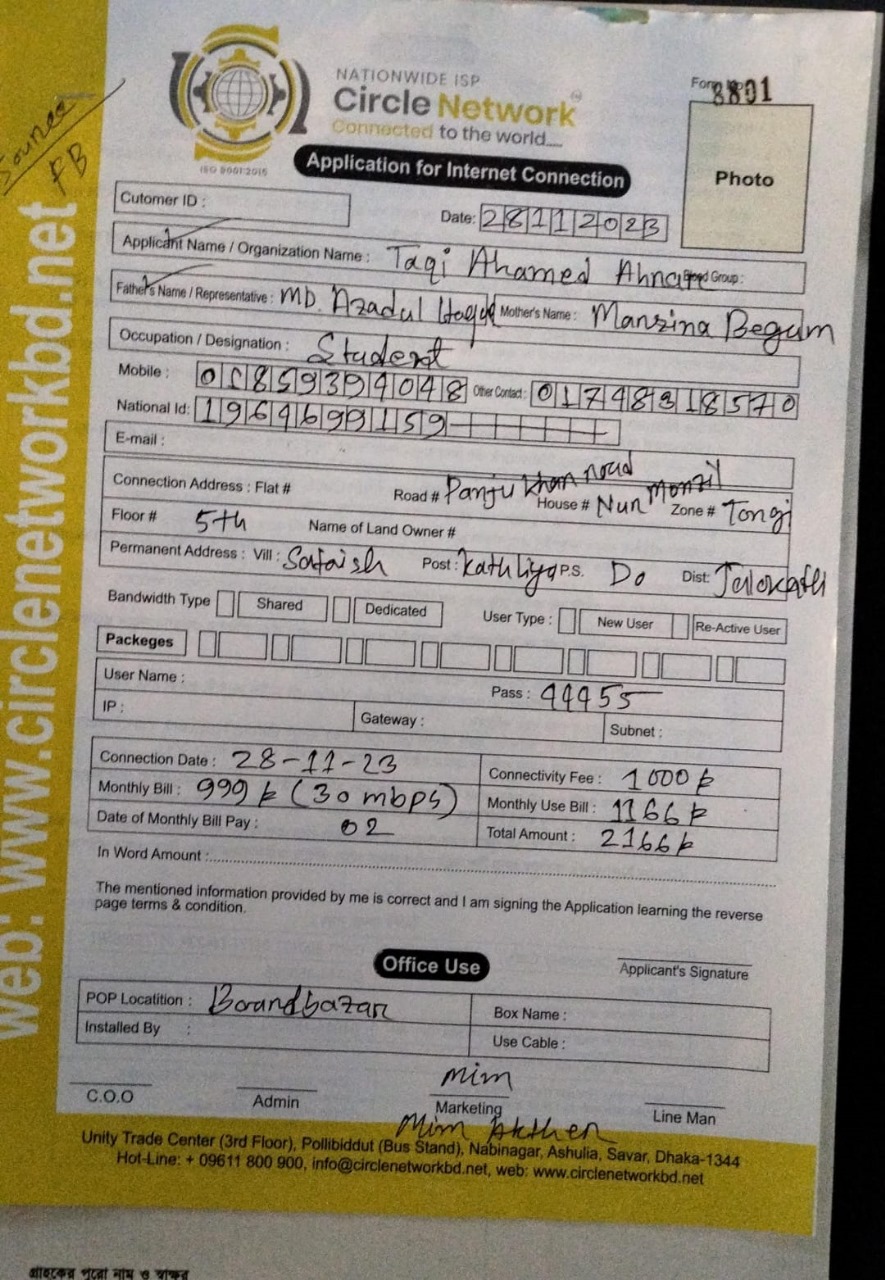 Source
FB
NATIONWIDE ISP
Circle Network™
Connected to the world.....
ISO 9001:2015
Form No 8801
Photo
Application for Internet Connection
Cutomer ID :
Date: 28112023
Applicant Name / Organization Name : Taqi Ahamed Ahnaf Blood Group :
Father's Name / Representative : MD. Azadul Haque Mother's Name : Mansina Begum
Occupation / Designation : Student
Mobile : 01859394048 Other Contact : 01748318570
National Id: 1964699159
E-mail :
Connection Address : Flat # Road # Panju Khan road House # Nur Monzil Zone # Tongi
Floor # 5th Name of Land Owner #
Permanent Address : Vill : Sataish Post : Kathliya P.S. Do Dist: Jalokathi
Bandwidth Type Shared Dedicated User Type : New User Re-Active User
Packeges
User Name : Pass : 44455
IP : Gateway : Subnet :
Connection Date : 28-11-23 Connectivity Fee : 1000 ৳
Monthly Bill : 999 ৳ (30 mbps) Monthly Use Bill : 1166 ৳
Date of Monthly Bill Pay : 02 Total Amount : 2166 ৳
In Word Amount :
The mentioned information provided by me is correct and I am signing the Application learning the reverse
page terms & condition.
Office Use
Applicant's Signature
POP Locatition : Boardbazar Box Name :
Installed By : Use Cable :
C.O.O Admin mim Marketing Line Man
Mim Akther
Unity Trade Center (3rd Floor), Pollibiddut (Bus Stand), Nabinagar, Ashulia, Savar, Dhaka-1344
Hot-Line: + 09611 800 900, info@circlenetworkbd.net, web: www.circlenetworkbd.net
web: www.circlenetworkbd.net
গ্রাহকের পুরো নাম ও স্বাক্ষর